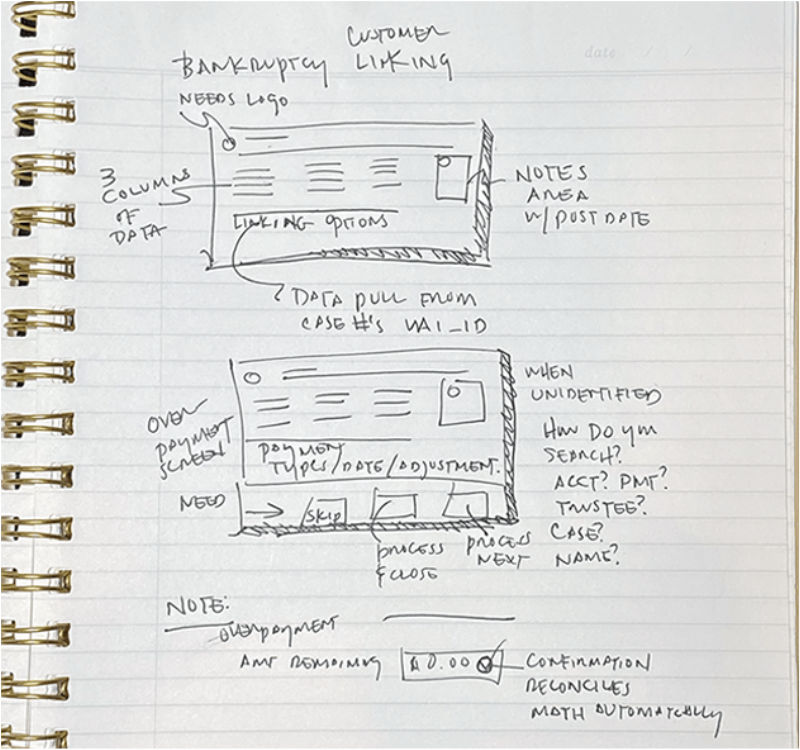 date / /
CUSTOMER
BANKRUPTCY LINKING
NEEDS LOGO
3
COLUMNS
OF
DATA
NOTES
AREA
W/ POST DATE
LINKING OPTIONS
DATA PULL FROM
CASE #'S VAI_ID
OVER
PAYMENT
SCREEN
PAYMENT
TYPES/DATE/ADJUSTMENT.
WHEN
UNIDENTIFIED
HOW DO YOU
SEARCH?
ACCT? PMT?
TRUSTEE?
CASE?
NAME?
NEED
SKIP
PROCESS
& CLOSE
PROCESS
NEXT
NOTE:
OVERPAYMENT
AMT REMAINING
0.00
CONFIRMATION
RECONCILES
MATH AUTOMATICALLY